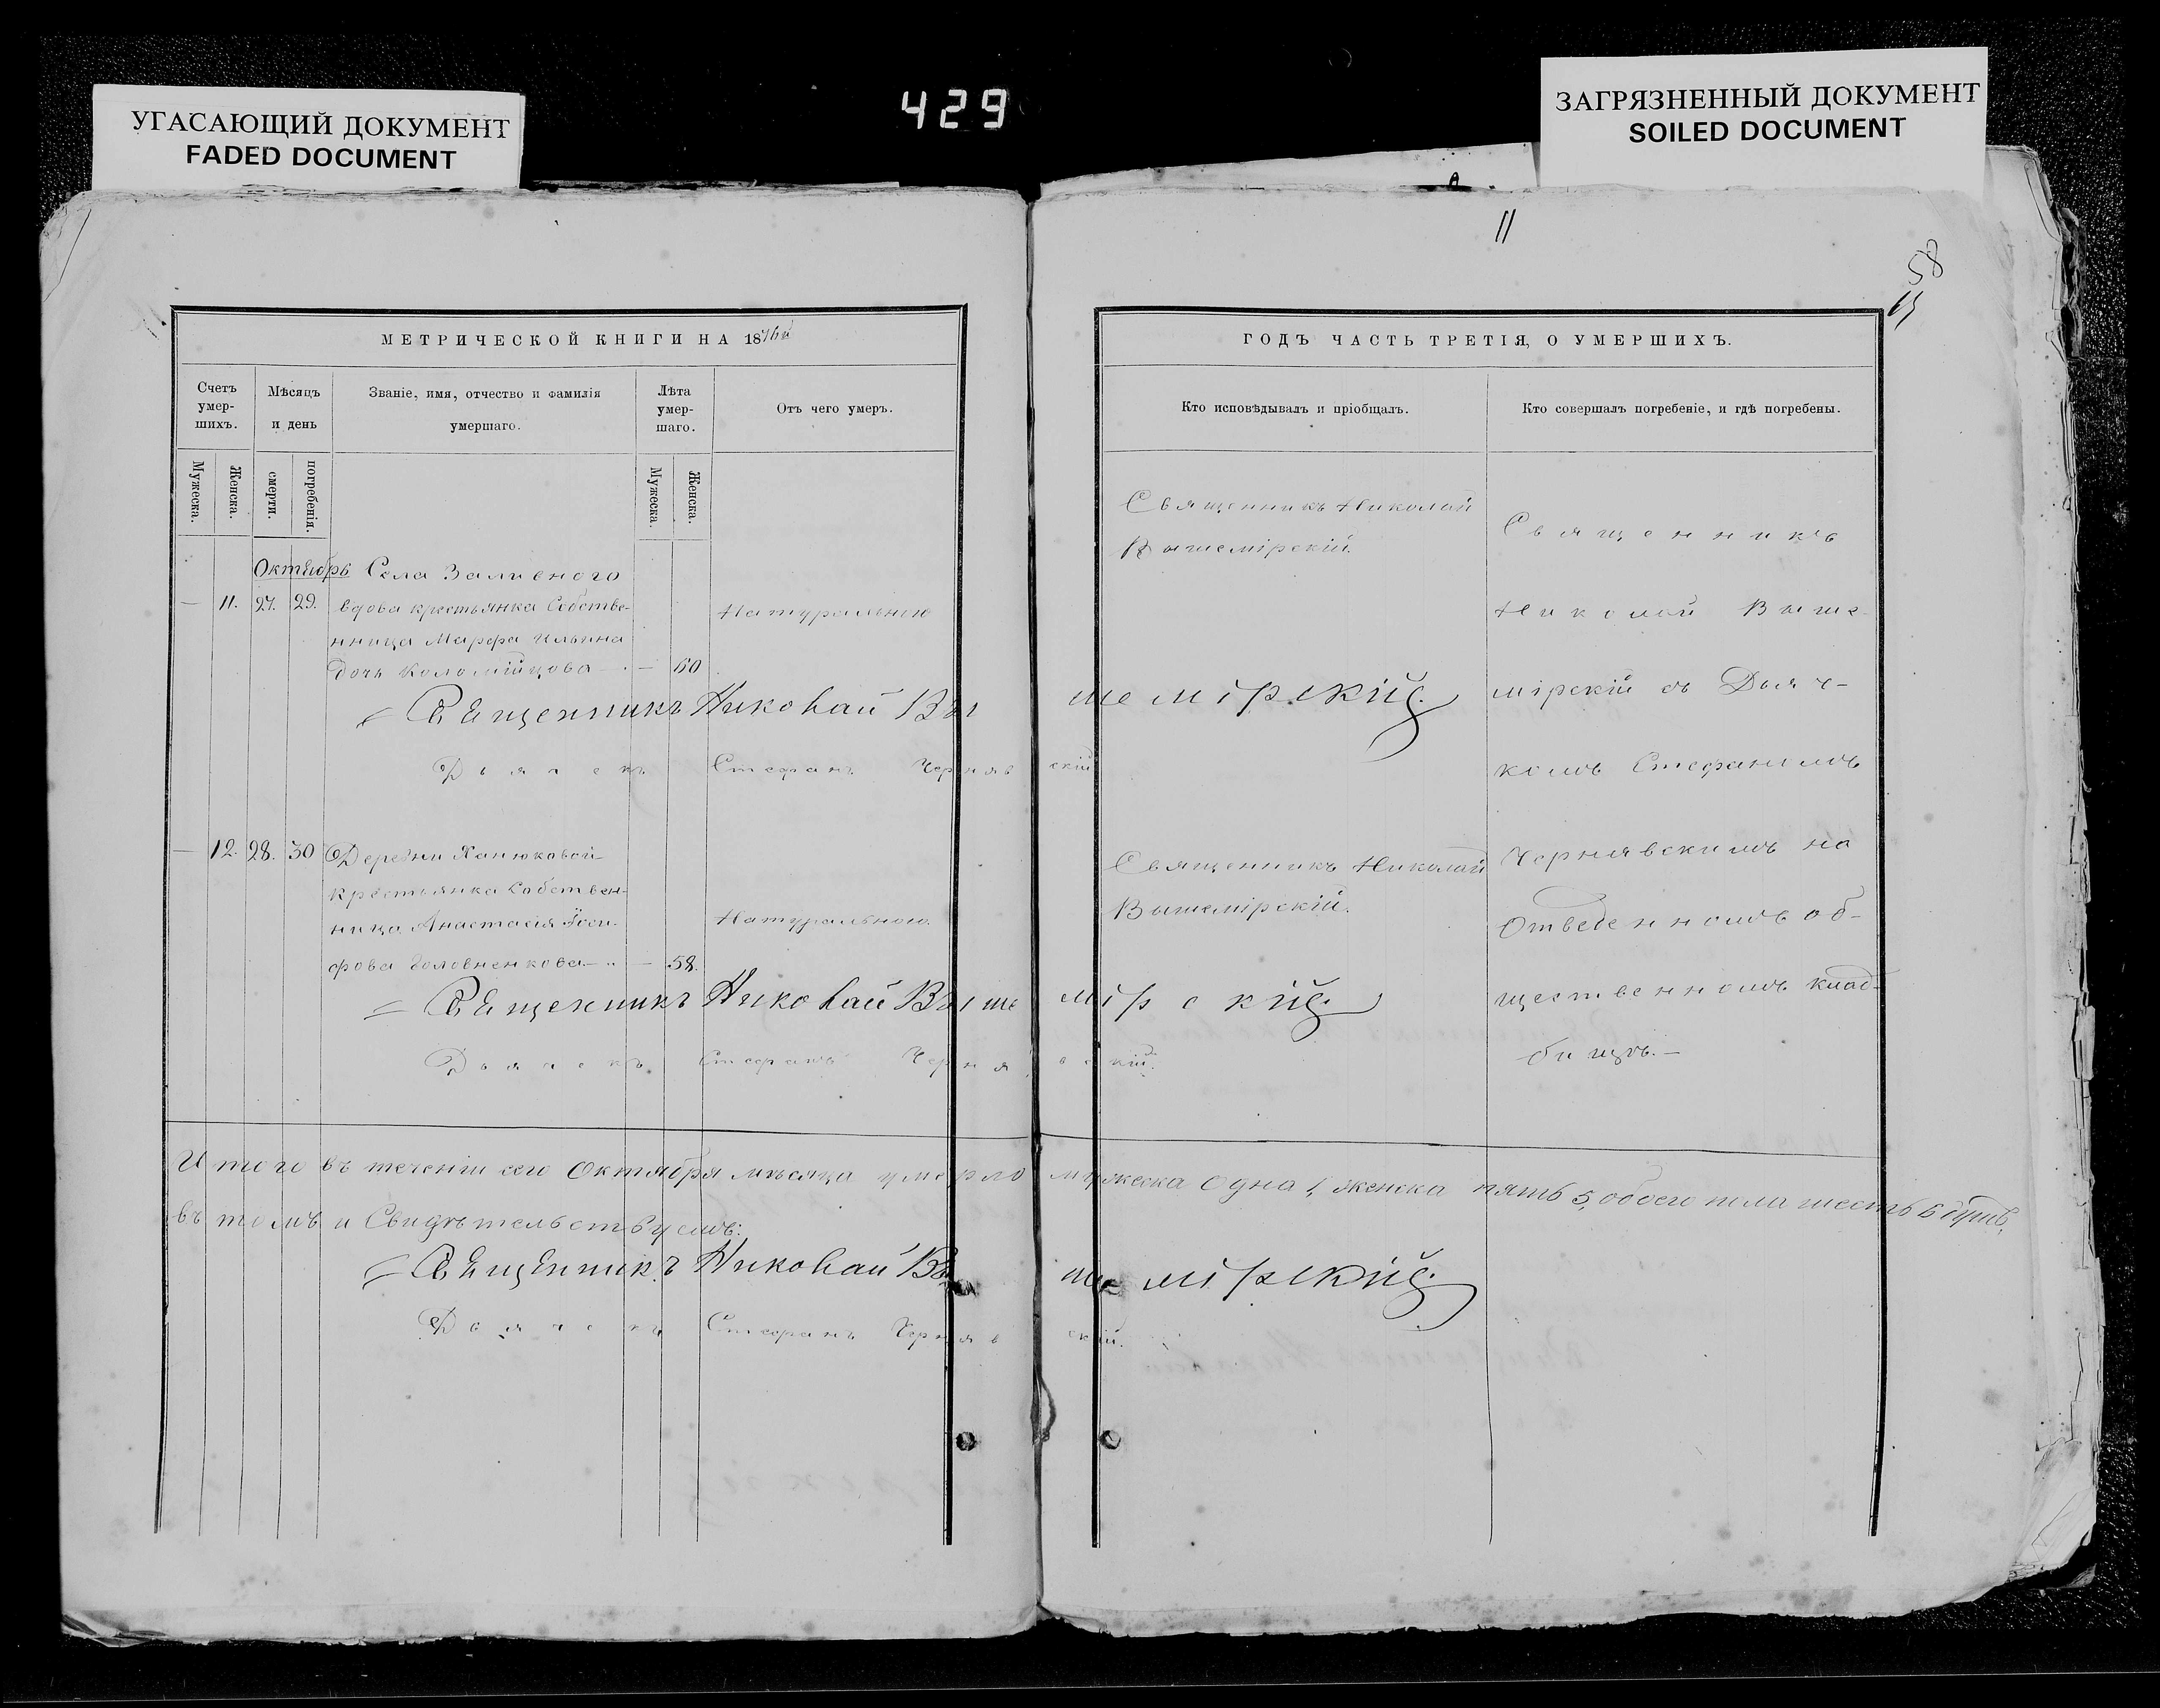 УГАСАЮЩИЙ ДОКУМЕНТ
FADED DOCUMENT
429
ЗАГРЯЗНЕННЫЙ ДОКУМЕНТ
SOILED DOCUMENT
11
58
МЕТРИЧЕСКОЙ КНИГИ НА 1876й
Счетъ умер-шихъ.
Мѣсяцъ и день
Званіе, имя, отчество и фамилія умершаго.
Лѣта умер-шаго.
Отъ чего умеръ.
Мужеска.
Женска.
смерти.
погребенія.
Мужеска.
Женска.
Октябрь Села Заливного
— 11. 27. 29. вдова крестьянка Собстве-
нница Марфа Ильина
дочь Коломійцова — 60
Натуральною
Священникъ Николай Вышемірскій
Дьячекъ Стефанъ Чернявскій
— 12. 28. 30 Деревни Ханюковой
крестьянка собствен-
ница Анастасія Іоси-
фова Головненкова — 58.
Натуральною
Священникъ Николай Вышемірскій
Дьячекъ Стефанъ Чернявскій.
ГОДЪ ЧАСТЬ ТРЕТІЯ, О УМЕРШИХЪ.
Кто исповѣдывалъ и пріобщалъ.
Кто совершалъ погребеніе, и гдѣ погребены.
Священникъ Николай
Вышемірскій.
Священникъ Николай
Вышемірскій.
Священникъ
Николай Выше-
мірскій съ Дьяч-
комъ Стефаномъ
Чернявскимъ на
Отведенномъ об-
щественномъ клад-
бищѣ. —
Итого въ теченіи сего Октября мѣсяца умерло мужеска одна 1, женска пять 5, обоего пола шесть 6 душъ,
въ томъ и Свидѣтельствуемъ:
Священникъ Николай Вышемірскій
Дьячекъ Стефанъ Чернявскій.